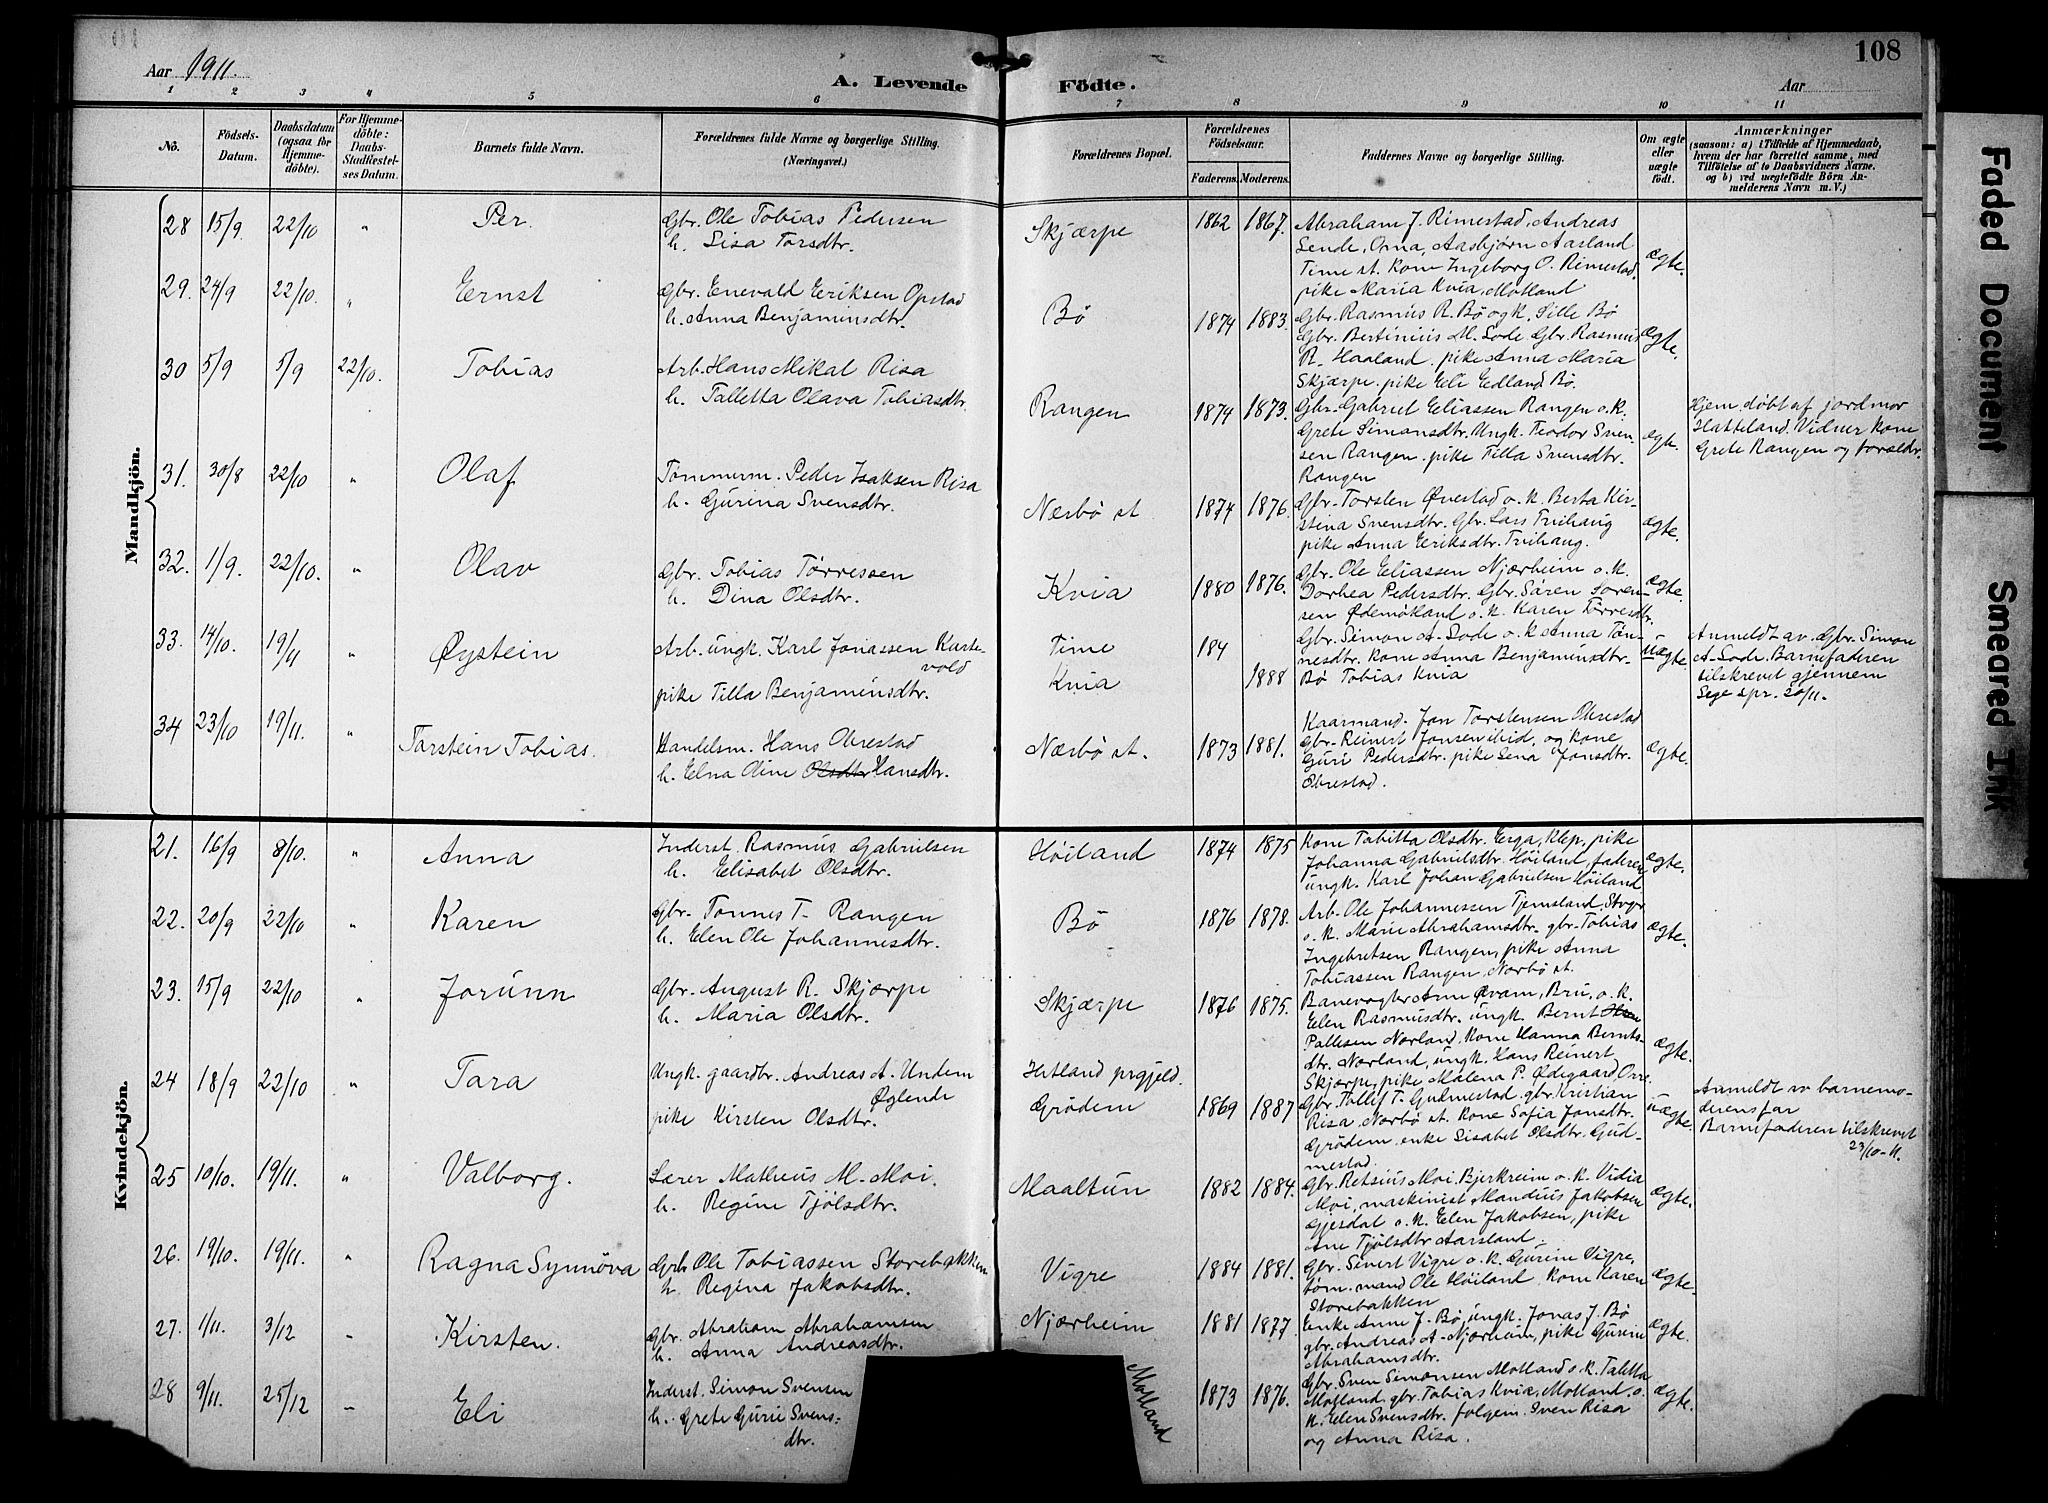 108
Aar 1911.
A. Levende Födte.
Aar
1 2 3 4 5 6 7 8 9 10 11
Nô.
Födsels-Datum.
Daabsdatum (ogsaa för Hjemme-döbte).
For Hjemme-döbte: Daabs-Stadfæstel-ses Datum.
Barnets fulde Navn.
Forældrenes fulde Navne og borgerlige Stilling. (Næringsvei.)
Forældrenes Bopæl.
Forældrenes Födselsaar.
Faderens. Moderens.
Faddernes Navne og borgerlige Stilling.
Om ægte eller uægte födt.
Anmærkninger
(saasom: a) i Tilfælde af Hjemmedaab,
hvem der har forrettet samme, med
Tilföielse af to Daabsvidners Navne.
og b) ved uægtefödte Börn An-
melderens Navn m. V.)
Mandkjön.
28 15/9 22/10 " Per.
Gbr. Ole Tobias Pedersen
h. Lisa Torsdtr.
Skjærpe 1862 1867.
Abraham J. Rimestad, Andreas
Sende, Orna, Aasbjørn Aarsland
Time st. Kone Ingeborg O. Rimestad,
pike Maria Kvia, Motland
ægte.
29. 24/9 22/10. " Ernst
Gbr. Enevald Eriksen Opstad
h. Anna Benjaminsdtr.
Bö 1874 1883.
Gbr. Rasmus R. Bø og k. Sille Bø
Gbr. Bertinius M. Lode Gbr. Rasmus
R. Haaland. pike Anna Maria
Skjærpe. pike Eli Edland Bø.
ægte.
30 5/9 5/9 22/10. Tobias
Arb. Hans Mikal Risa
h. Talletta Olava Tobiasdtr.
Rangen 1874 1873.
Gbr. Gabriel Eliassen Rangen o.k.
Grete Simonsdtr. Ungk. Teodor Sven-
sen Rangen. pike Tilla Svensdtr.
Rangen
ægte.
Hjem. døbt af jordmor
Hatteland. Vidner kone
Grete Rangen og foreldr.
31. 30/8 22/10 " Olaf
Tømmerm. Peder Isaksen Risa
h. Gurina Svensdtr.
Nærbö st 1874 1876.
Gbr. Torsten Øvestad o.k. Berta Kir-
stina Svensdtr. Gbr. Lars Tuihaug
pike Anna Eriksdtr. Tuihaug.
ægte.
32. 1/9. 22/10. " Olav
Gbr. Tobias Tørressen
h. Dina Olsdtr.
Kvia 1880 1876.
Gbr. Ole Eliassen Njærheim o.k.
Dorhea Pedersdtr. Gbr. Sören Soren-
sen Ødemotland o.k. Karen Tørresdtr.
ægte.
33. 14/10. 19/11 " Øystein
Arb. ungk. Karl Jonassen Karte-
vold
pike Tilla Benjaminsdtr.
Time 184
Kvia 1888
Gbr. Simon A. Lode o.k Anna Tøn-
nesdtr. kone Anna Benjaminsdtr.
Bø Tobias Kvia
uægte.
Anmeldt av Gbr. Simon
A. Lode. Barnefaderen
tilskrevet gjennem
Sogespr. 20/11.
34 23/10 19/11. " Torstein Tobias.
Handelsm. Hans Obrestad
h. Elna Oline Olsdtr Hansdtr.
Nærbö st. 1873 1881.
Kaarmand. Jon Torstensen Obrestad
Gbr. Reinert Jonsen ibid, og kone
Guri Pedersdtr. pike Lena Jonsdtr.
Obrestad.
ægte.
Kvindekjön.
21. 16/9 8/10. " Anna
Inderst. Rasmus Gabrielsen
h. Elisabet Olsdtr.
Höiland 1874 1875
Kone Tabitta Olsdtr. Erga, Klep, pike
Johanna Gabrielsdtr. Höiland, faderen
ungk. Karl Johan Gabrielsen Höiland
ægte.
22. 20/9 22/10 " Karen
Gbr. Tonnes T. Rangen
h. Elen Ole Johannesdtr.
Bö 1876 1878.
Arb. Ole Johannessen Tjemsland, Stvgr
o.k. Marie Abrahamsdtr. gbr. Tobias
Ingebretsen Rangen, pike Anna
Tobiassen Rangen, Nærbø st.
ægte.
23. 15/9 22/10 " Jorunn
Gbr. August R. Skjærpe
h. Maria Olsdtr.
Skjærpe 1876 1875.
Banevogter Arne Øvam, Bru, o.k.
Elen Rasmusdtr. ungk. Bernt
Pallesen Nærland, kone Hanna Bernts-
dtr. Nærland, ungk. Hans Reinert
Skjærpe, pike Malena P. Ødegaard, Orre
ægte.
24 18/9 22/10 " Tara
Ungk. gaardbr. Andreas A. Undem
Øglende
pike Kirsten Olsdtr.
Hetland prgjeld. 1869 1887
Grödem
Gbr. Tollef T. Gudmestad, gbr. Kristian
Risa, Nærbø st. kone Sofia Jonsdtr.
Grödem, enke Lisabet Olsdtr. Gud-
mestad.
uægte.
Anmeldt av barnemo-
derens far
Barnefaderen tilskrevet
23/10-11.
25 10/10. 19/11. " Valborg.
Lærer Matheus M. Moi.
h. Regine Tjölsdtr.
Maaltun 1882 1884.
Gbr. Retsius Moi, Bjerkreim o.k. Vidia
Moi, maskinist Mandius Jakobsen
Gjesdal o.k. Elen Jakobsen, pike
Ane Tjölsdtr Aarsland.
ægte.
26. 19/10. 19/11. " Ragna Synnöva
Gbr. Ole Tobiassen Storebakken
h. Regina Jakobsdtr.
Vigre 1884 1881.
Gbr. Sivert Vigre o.k. Gurine Vigre,
tøm.mand Ole Höiland, kone Karen
Storebakken
ægte.
27. 1/11. 3/12 " Kirsten.
Gbr. Abraham Abrahamsen
h. Anna Andreasdtr.
Njærheim 1881 1877
Enke Anne J. Bø, ungk. Jonas J. Bø
gbr. Andreas A. Njærheim, pike Gurine
Abrahamsdtr.
ægte.
28 9/11. 25/12 " Eli
Inderst. Simon Svensen
h. Grete Guri Svens-
dtr.
Motland 1873 1876.
Gbr. Sven Simonsen Motland o.k. Taletta
Motland. gbr. Tobias Kvia, Motland. o.
k. Elen Svensdtr. følgem. Sven Risa
og Anna Risa.
ægte.
Faded Document
Smeared Ink